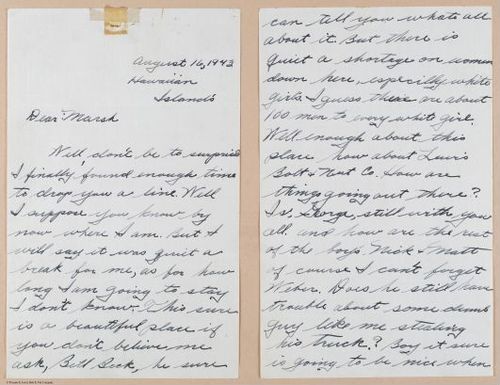 August 16, 1943
Hawaiian
Islands
Dear Marsh
Well don't be to surprised
I finally found enough time
to drop you a line. Well
I suppose you know by
now where I am. But I
will say it was quit a
break for me, as for how
long I am going to stay
I don't know. This sure
is a beautiful place if
you don't believe me
ask, Bell Beck, he sure
can tell you whats all
about it. But there is
Quiet a shortage on women
down here, especially white
girls. I guess there are about
100 men to every white girl.
Well enough about this
place how about Lewis
Bolt & Nut Co. How are
things going out there?
Is, George, still with you
all. and how are the rest
of the boys Nick & Matt
of course I can't forget
Weber. Does he still have
trouble about some dumb
guy like me stealing
his truck? Boy it sure
is going to be nice when